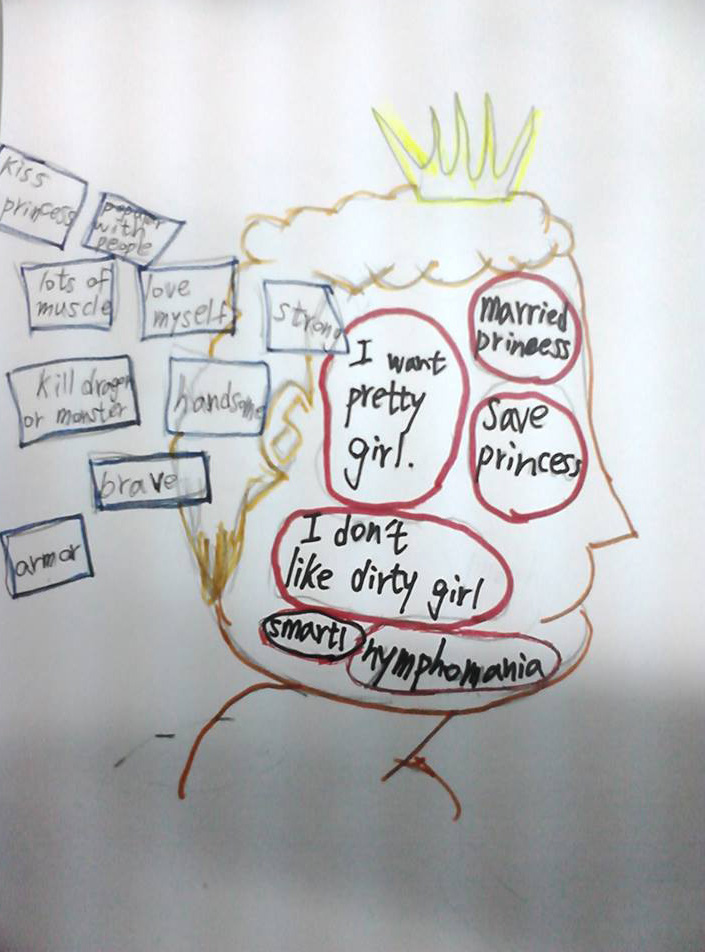 kiss
princess
popular
with
people
lots of
muscle
love
myself
strong
married
princess
I want
pretty
girl.
kill dragon
or monster
handsome
save
princess
brave
I don't
like dirty girl
armor
smart!
nymphomania